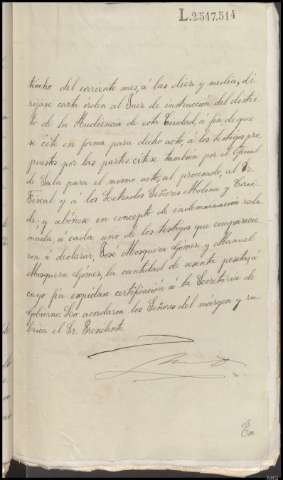 L.2547.514
tiocho del corriente mes, á las diez y media, di
rijase carta orden al Juez de instrucción del distri
to de la Audiencia de esta Ciudad, á fin de que
se cite en forma para dicho acto, á los testigos pro
puestos por las partes cítese tambien por el Oficial
de Sala para el mismo acto, al procesado, al Sr.
Fiscal y á los Letrados Señores Molina y Fernán
dez y abónese en concepto de indemnización
á cada uno de los testigos que comparecie
ron á declarar, José Mosquera Gómez y Manuel
Mosquera Gómez, la cantidad de pesetas, á
cuyo fin expídase certificación á la Secretaria de
Gobierno. Lo acordaron los Señores del margen y ru
brica el Sr. Presidente.
En